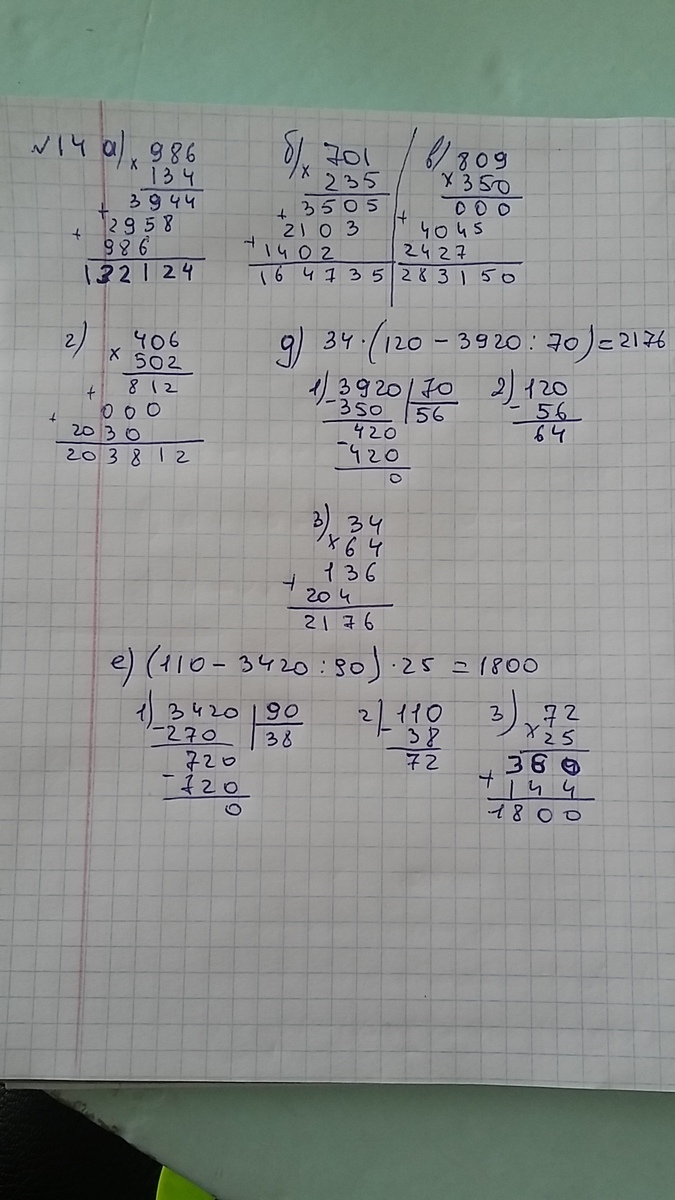 №14 а) × 986
134
+ 3944
+ 2958
986
132124
б) × 701
235
+ 3505
2103
+ 1402
164735
в) 809
× 350
000
+ 4045
2427
283150
г) 406
× 502
+ 812
+ 000
2030
203812
д) 34·(120 - 3920 : 70) = 2176
1) 3920 | 70
- 350 | 56
420
- 420
0
2) 120
- 56
64
3) 34
× 64
136
+ 204
2176
е) (110 - 3420 : 90) · 25 = 1800
1) 3420 | 90
- 270 | 38
720
- 720
0
2) 110
- 38
72
3) 72
× 25
360
+ 144
1800